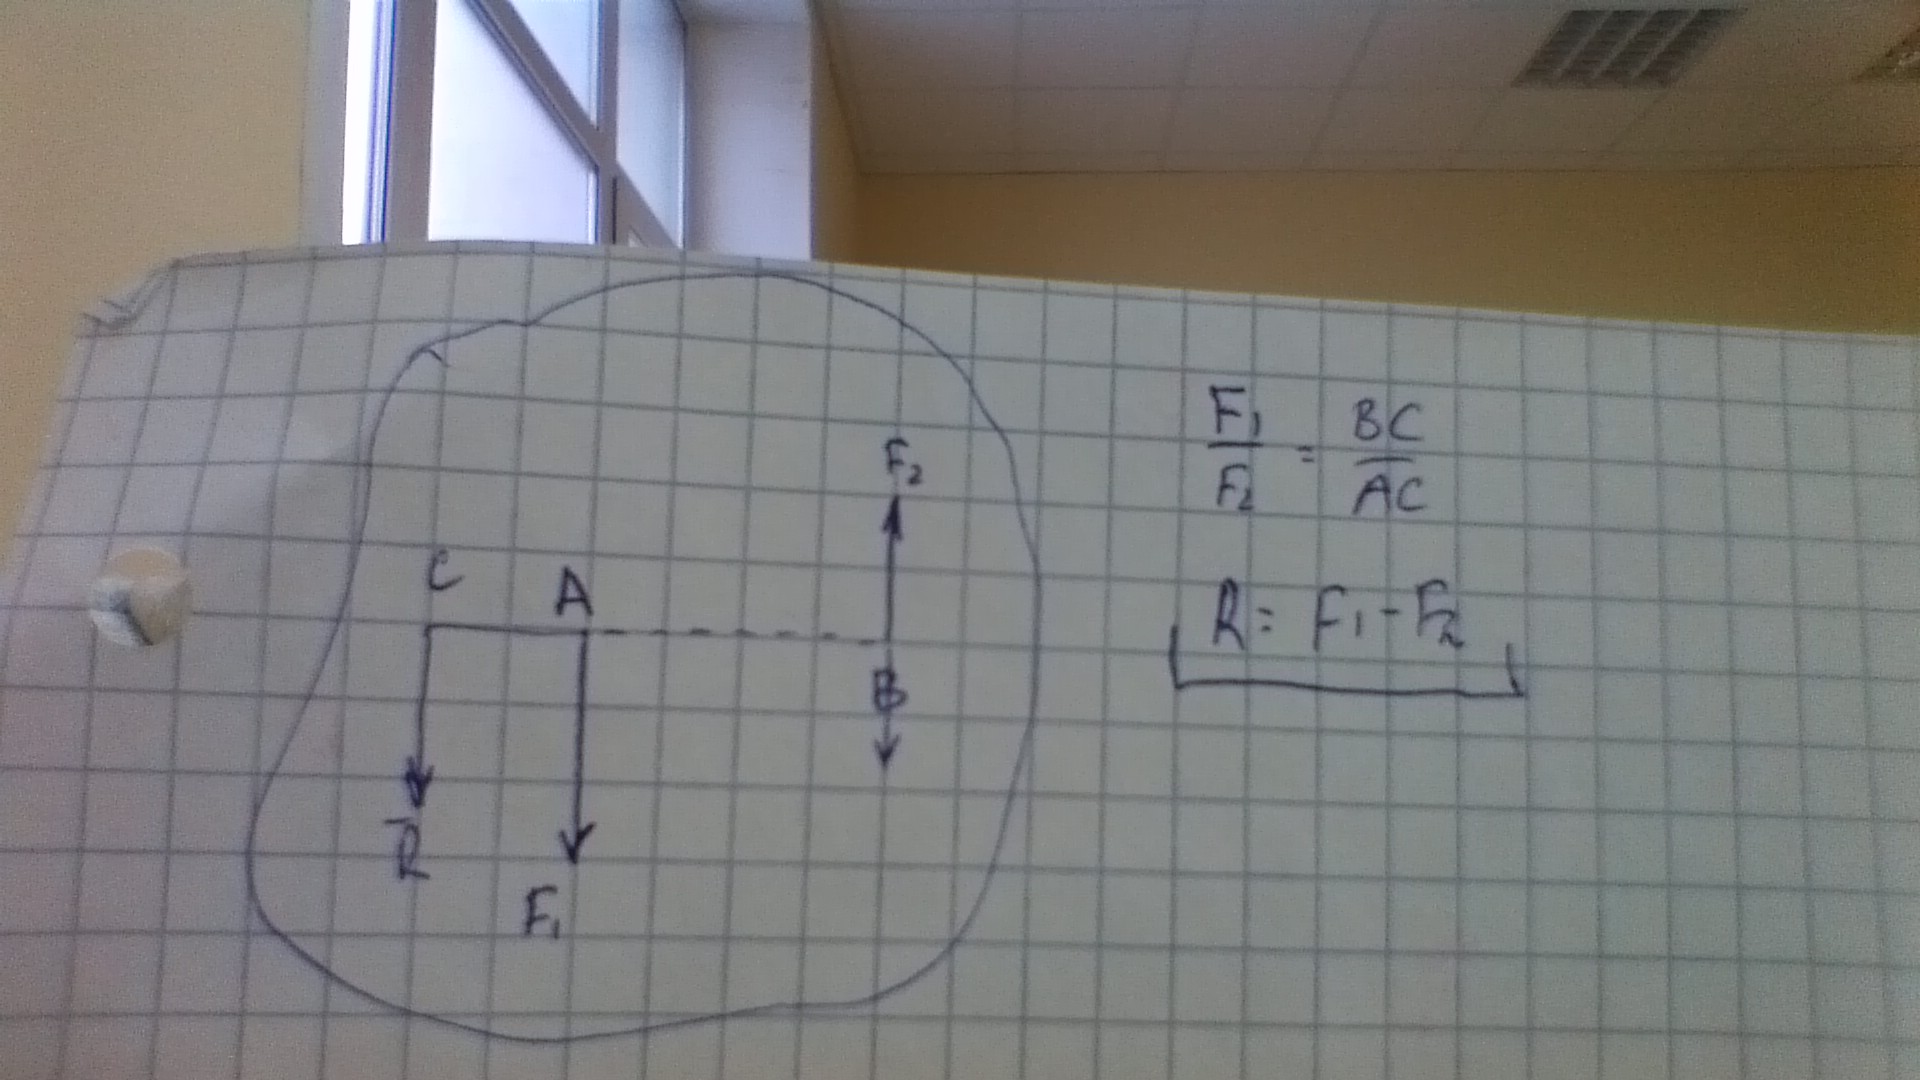 F₂
C
A
B
R̅
F₁
F₁/F₂ = BC/AC
R = F₁ - F₂